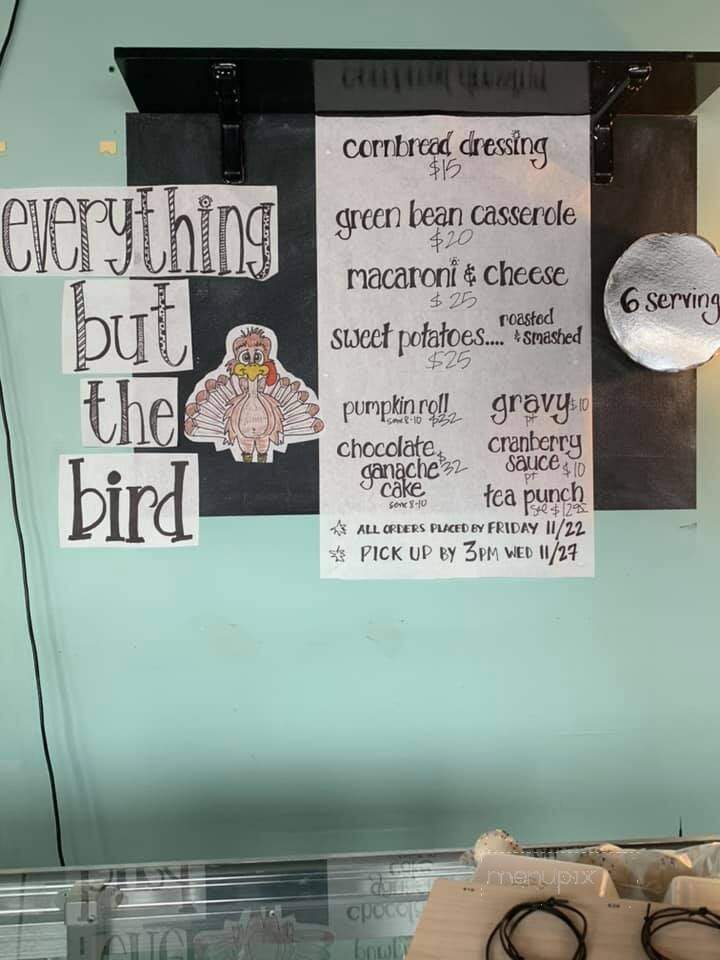 everything
but
the
bird
cornbread dressing
$15
green bean casserole
$20
macaroni & cheese
$25
sweet potatoes.... roasted
& smashed
$25
pumpkin roll
8-10 $32
chocolate
ganache $32
cake
8-10
gravy $10
pt
cranberry
sauce $10
pt
tea punch
☆ ALL ORDERS PLACED BY FRIDAY 11/22
☆ PICK UP BY 3PM WED 11/27
6 serving
menupix